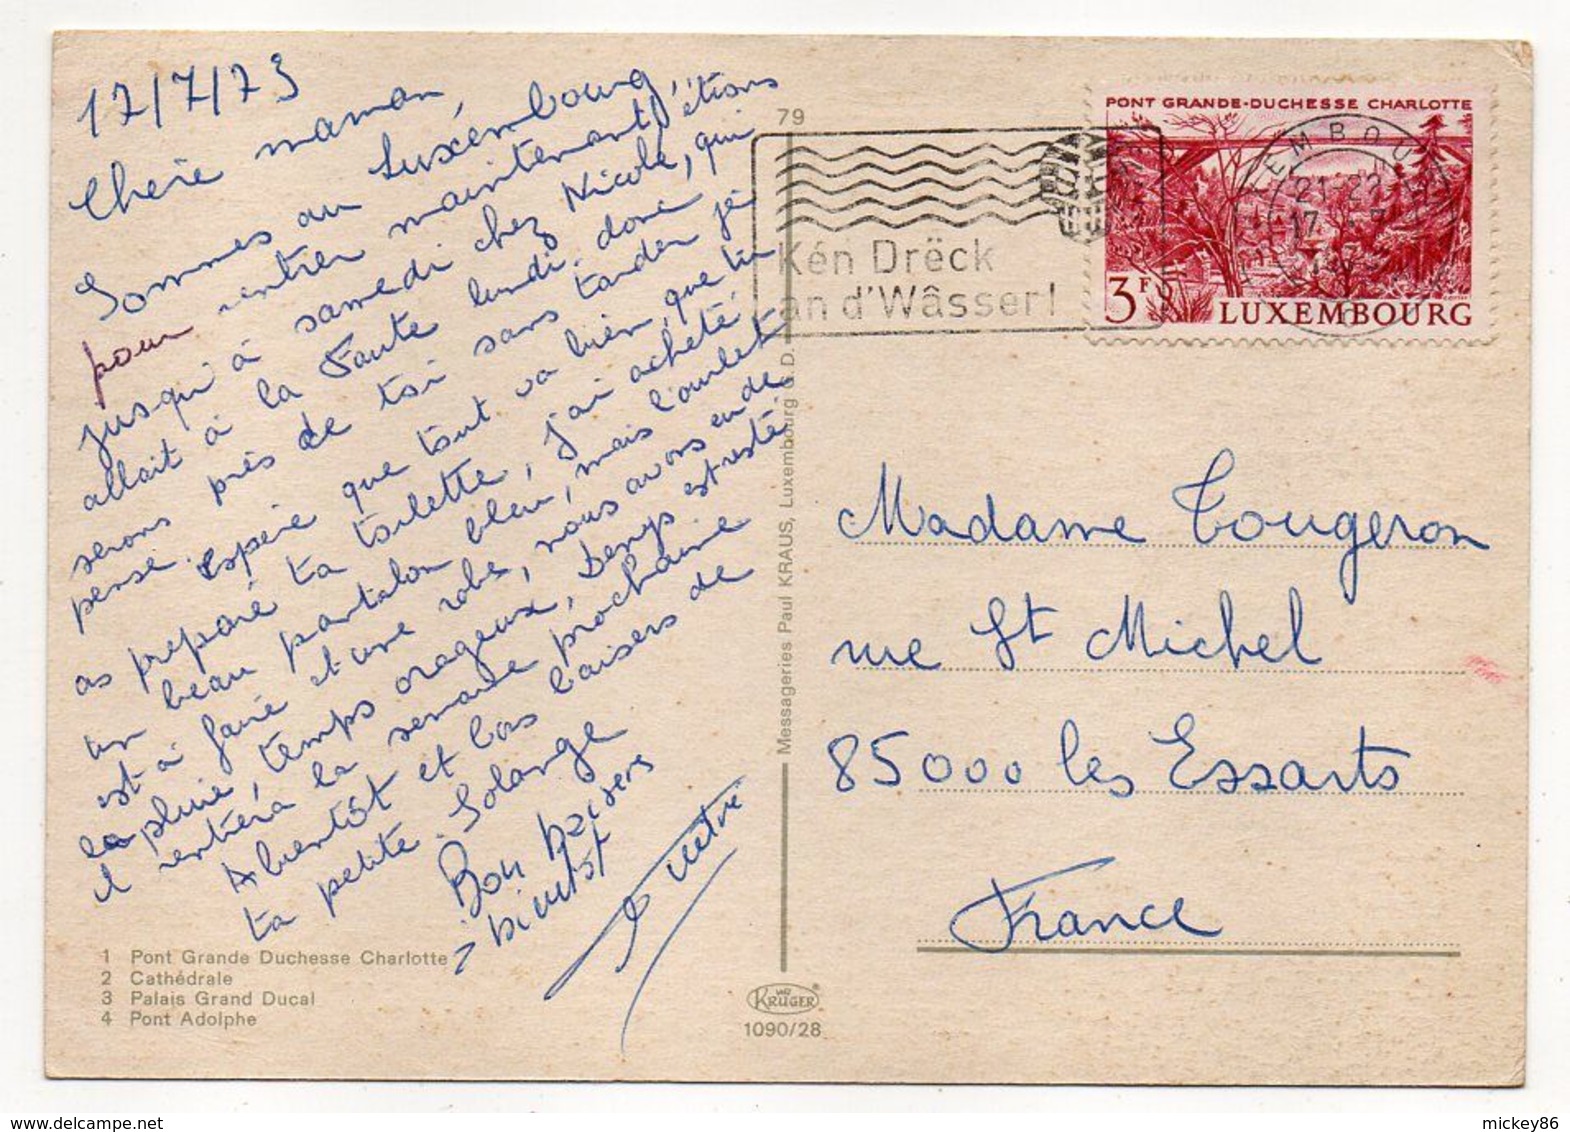 17/7/73
Chère maman,
Sommes au Luxembourg,
pour rentrer maintenant, étions
jusqu'à samedi chez Nicole, qui
allait à la Faute lundi, donc
serons près de toi sans tarder je
pense. Espère que tout va bien, que tu
as préparé ta toilette, j'ai acheté
un beau pantalon bleu, mais l'ourlet
est à faire et une robe, nous avons eu de
la pluie, temps orageux, Denys est resté
il rentrera la semaine prochaine
A bientôt et bons baisers de
ta petite Solange
Bon baisers
a bientôt
79
PONT GRANDE-DUCHESSE CHARLOTTE
3F LUXEMBOURG
LUXEMBOURG
21-22
17
Kén Drëck
an d'Wâsser!
Messageries Paul KRAUS, Luxembourg G.D.
Madame Tougeron
rue St Michel
85000 les Essarts
France
1 Pont Grande Duchesse Charlotte
2 Cathédrale
3 Palais Grand Ducal
4 Pont Adolphe
KRÜGER
1090/28
mickey86